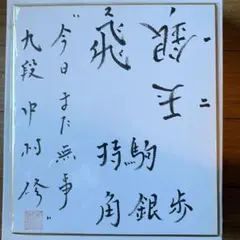 飛 銀 一
王 二
持駒
角 銀 歩
“今日また無事”
九段 中村修